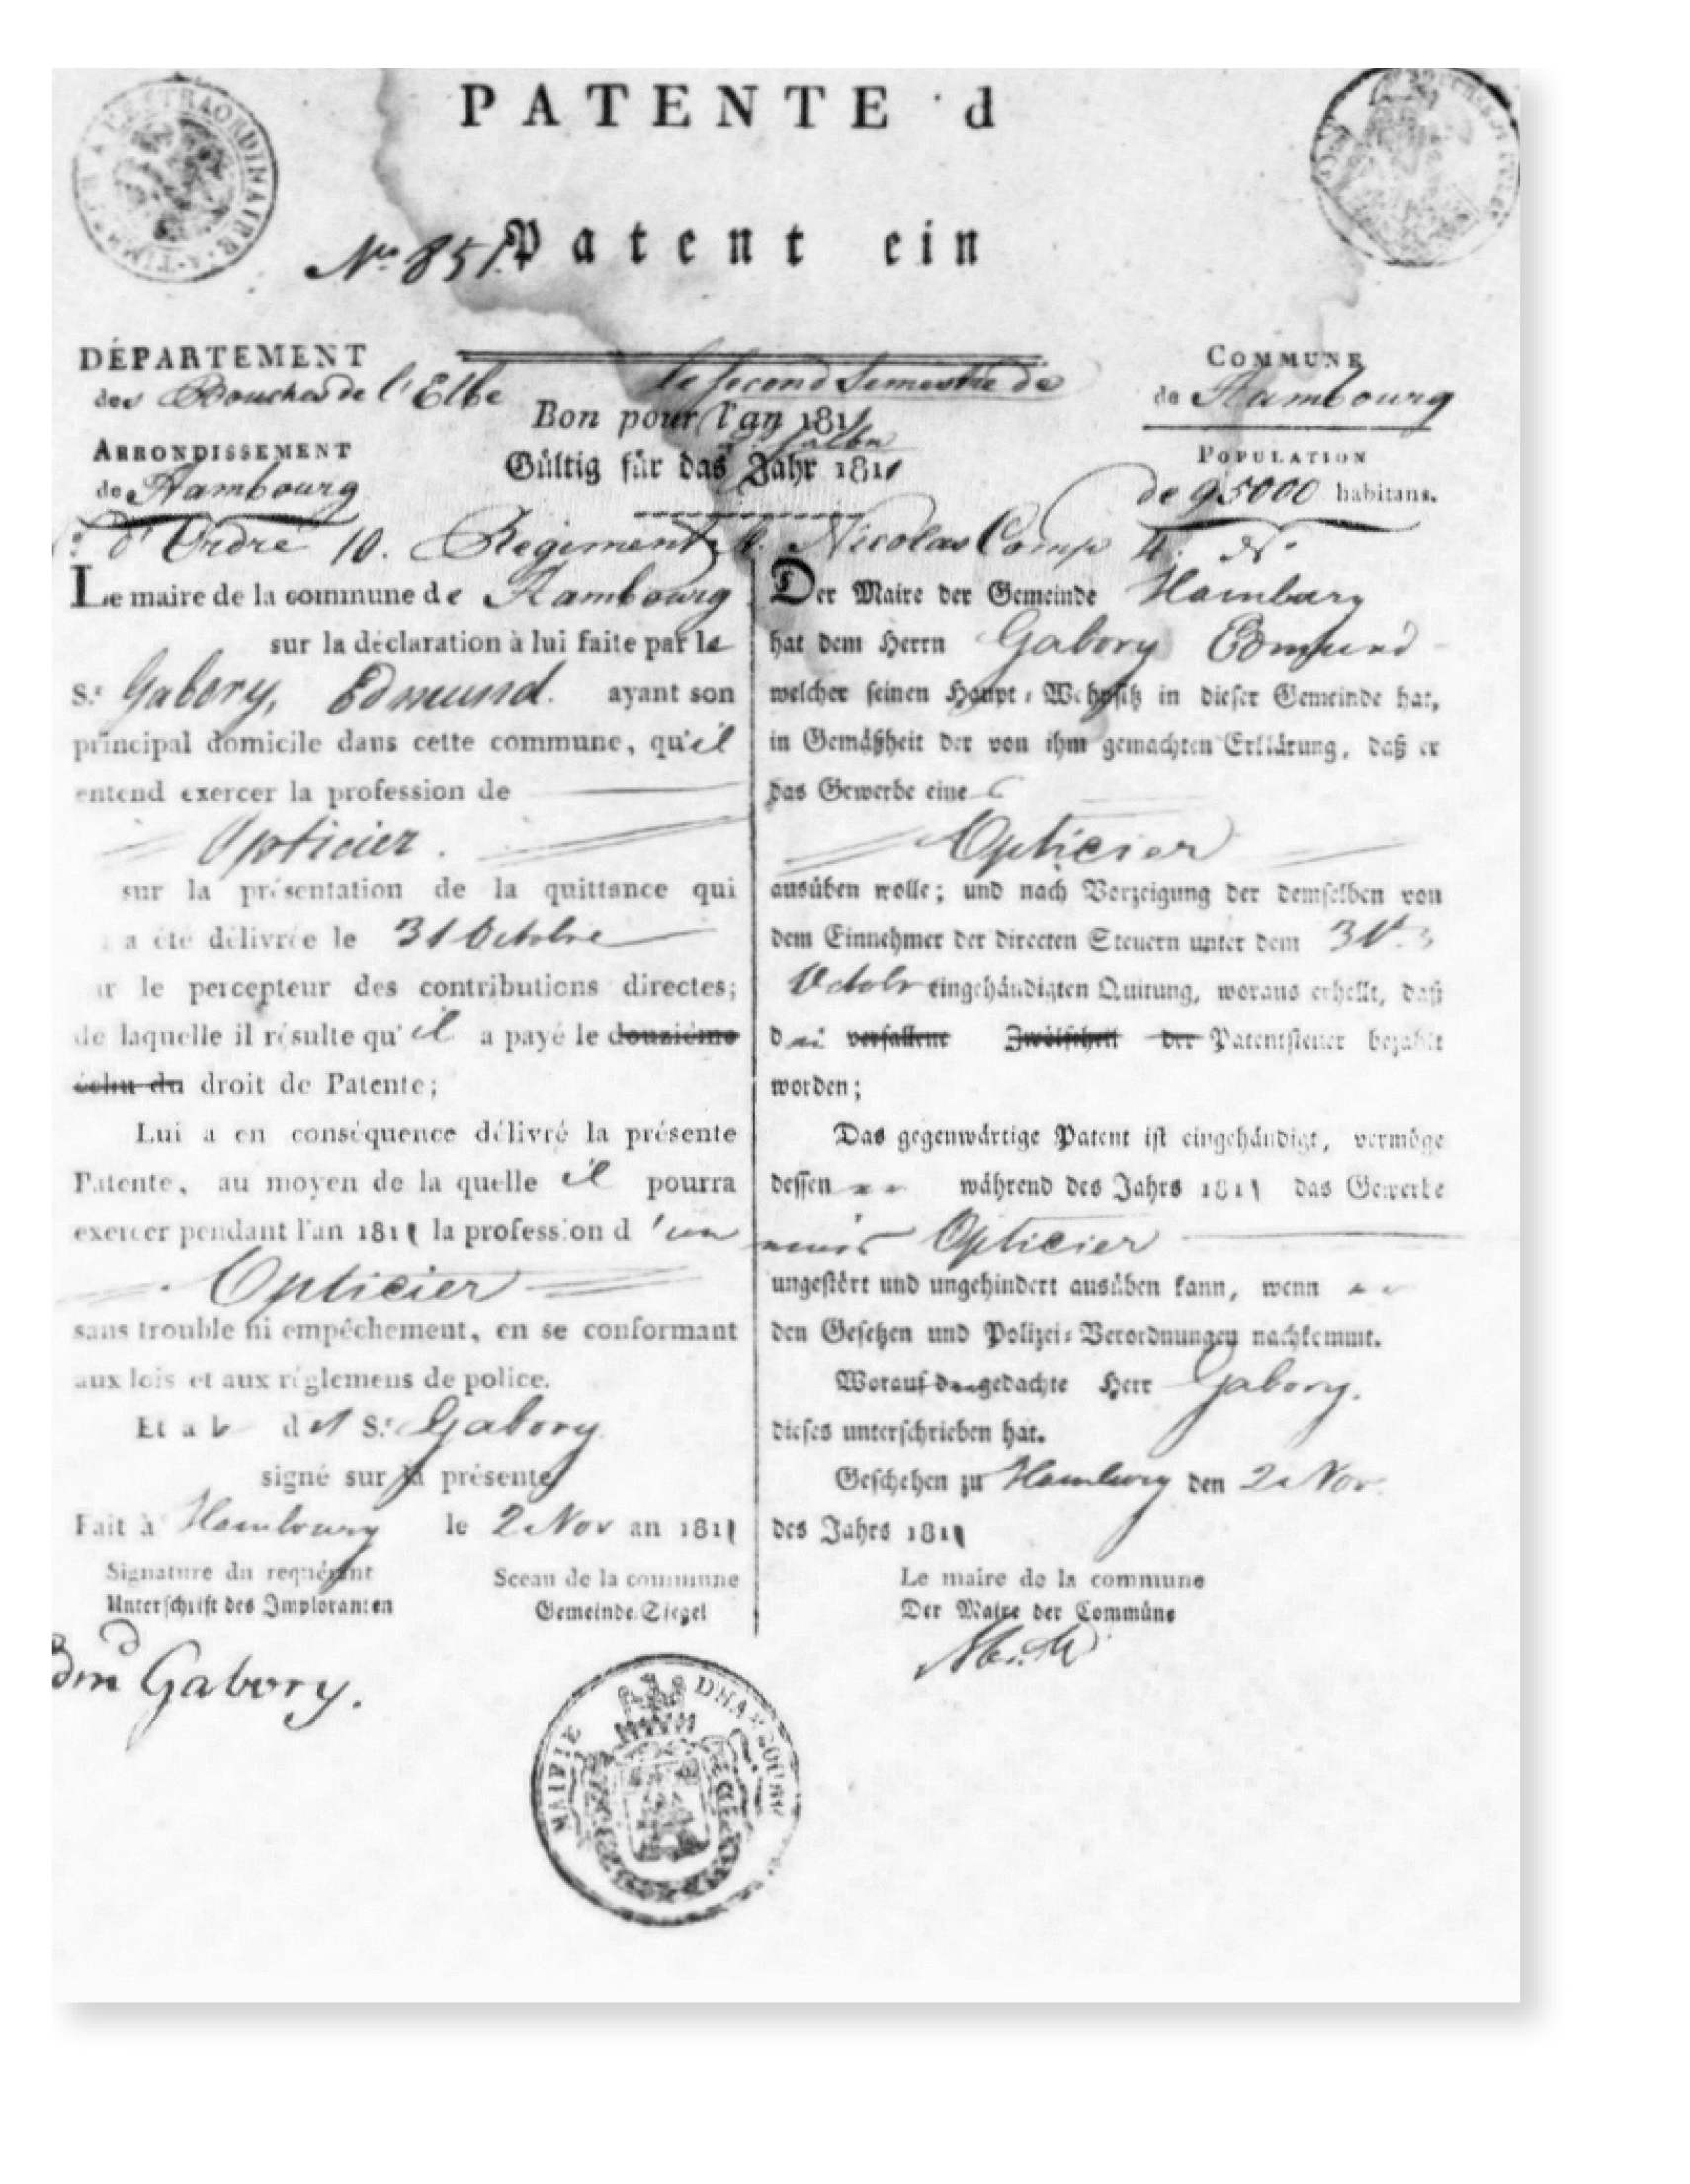 PATENTE d
No 851. Patent ein
DÉPARTEMENT
des Bouches de l'Elbe
ARRONDISSEMENT
de Hambourg
le second Semestre de
Bon pour l'an 1811
Gültig für das Jahr 1811
COMMUNE
de Hambourg
POPULATION
de 95000 habitans.
d'Ordre 10. Regiment Nicolas Comp 4. No
Le maire de la commune de Hambourg
sur la déclaration à lui faite par le
S.r Gabory, Edmund. ayant son
principal domicile dans cette commune, qu'il
entend exercer la profession de
Opticier.
sur la présentation de la quittance qui
a été délivrée le 31 Octobre
le percepteur des contributions directes;
de laquelle il résulte qu'il a payé le douziéme
échu du droit de Patente;
Lui a en conséquence délivré la présente
Patente, au moyen de la quelle il pourra
exercer pendant l'an 1811 la profession d'un
Opticier
sans trouble ni empêchement, en se conformant
aux lois et aux réglemens de police.
Et a le dit S.r Gabory
signé sur la présente
Fait à Hambourg le 2 Nov an 1811
Signature du requérant
Unterschrift des Imploranten
Sceau de la commune
Gemeinde-Siegel
Der Maire der Gemeinde Hamburg
hat dem Herrn Gabory Edmund
welcher seinen Haupt-Wohnsitz in dieser Gemeinde hat,
in Gemäßheit der von ihm gemachten Erklärung, daß er
das Gewerbe eines
Opticier
ausüben wolle; und nach Vorzeigung der demselben von
dem Einnehmer der directen Steuern unter dem 31
October eingehändigten Quitung, woraus erhellt, daß
die verfallene Zwölftheil der Patentsteuer bezahlt
worden;
Das gegenwärtige Patent ist eingehändigt, vermöge
dessen er während des Jahrs 1811 das Gewerbe
eines Opticier
ungestört und ungehindert ausüben kann, wenn er
den Gesetzen und Polizei-Verordnungen nachkommt.
Worauf gedachte Herr Gabory.
dieses unterschrieben hat.
Geschehen zu Hamburg den 2 Nov.
des Jahrs 1811
Le maire de la commune
Der Maire der Commüne
Edmd Gabory.
MAIRIE D'HAMBOURG